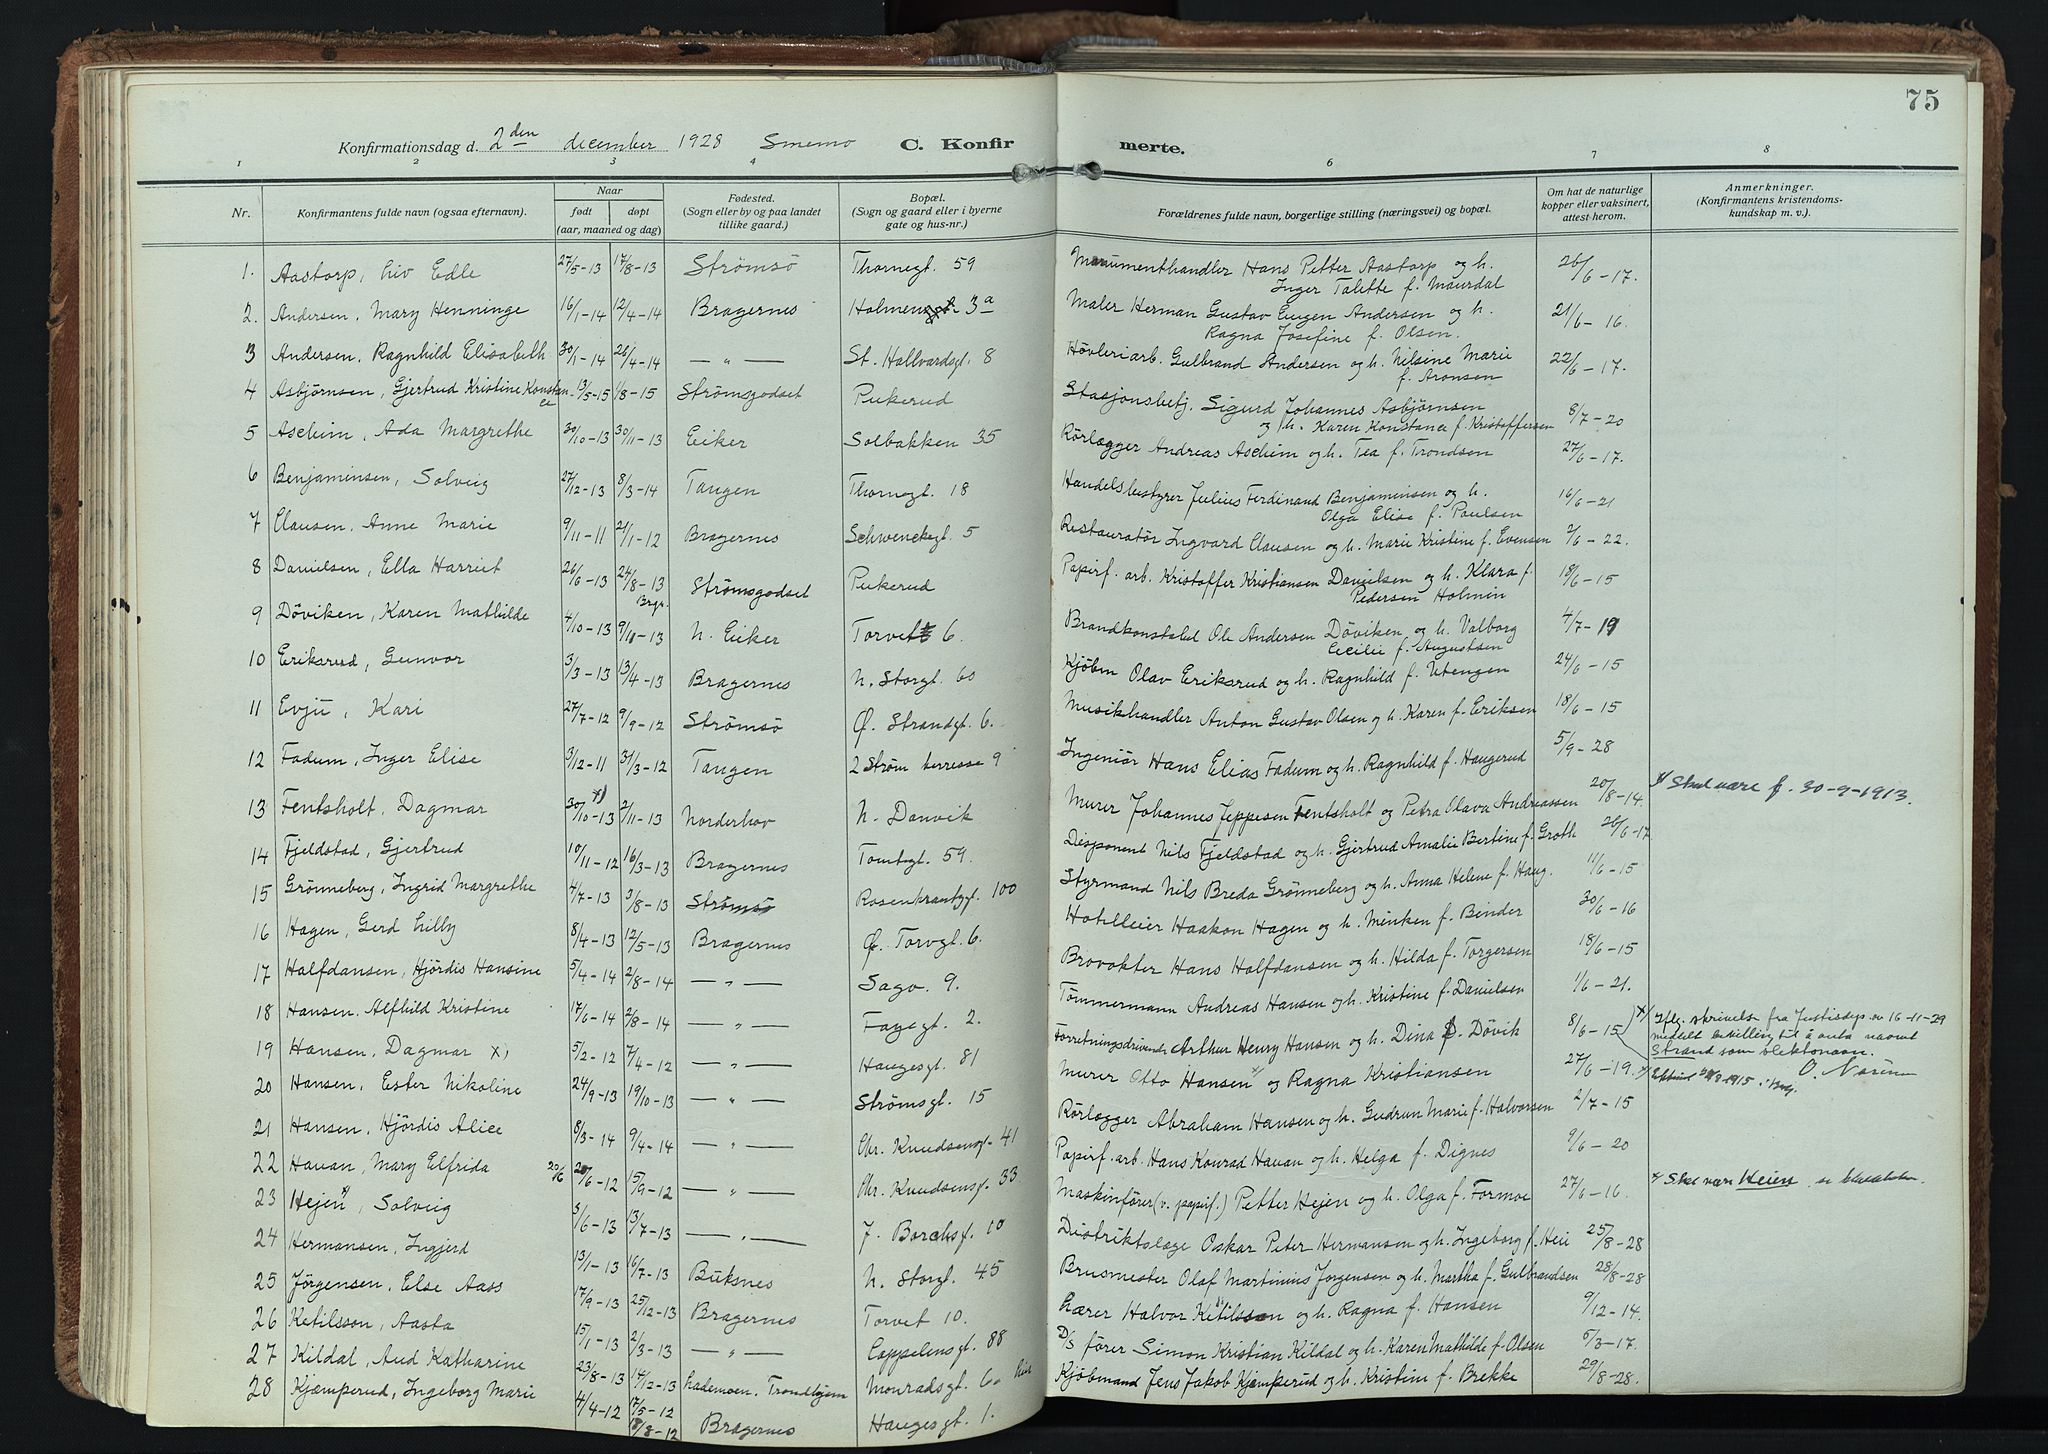 75
Konfirmationsdag d. 2den december 1928 Smemo C. Konfirmerte.
1 2 3 4 6 7 8
Nr. Konfirmantens fulde navn (ogsaa efternavn). Naar født døpt (aar, maaned og dag) Fødested. (Sogn eller by og paa landet tillike gaard.) Bopæl. (Sogn og gaard eller i byerne gate og hus-nr.) Forældrenes fulde navn, borgerlige stilling (næringsvei) og bopæl. Om hat de naturlige kopper eller vaksinert, attest herom. Anmerkninger. (Konfirmantens kristendomskundskap m. v.).
1. Aastorp, Liv Edle 27/5-13 17/8-13 Strømsø Thornegt. 59 Monumenthandler Hans Petter Aastorp og h. Inger Talette f. Maurdal 26/6-17.
2. Andersen, Mary Henninge 16/1-14 12/4-14 Bragernes Holmen 3a Maler Herman Gustav Eugen Andersen og h. Ragna Josefine f. Olsen. 21/6-16.
3 Andersen, Ragnhild Elisabeth 30/1-14 26/4-14 — " — St. Hallvardsgt. 8 Høvleriarb. Gulbrand Andersen og h. Nilsine Marie f. Aronsen 22/6-17.
4 Asbjørnsen, Gjertrud Kristine Konstance 13/5-15 1/8-15 Strømsgodset Pukerud Stasjonsbetj. Sigurd Johannes Asbjørnsen og h. Karen Konstance f. Kristoffersen 8/7-20
5 Ascheim, Ada Margrethe 30/10-13 30/11-13 Eiker Solbakken 35 Rørlægger Andreas Ascheim og h. Tea f. Trondsen 27/6-17.
6 Benjaminsen, Solveig 27/12-13 8/3-14 Tangen Thornegt. 18 Handelsbestyrer Julius Ferdinand Benjaminsen og h. Olga Elise f. Paulsen 16/6-21
7 Clausen, Anne Marie 9/11-11 21/1-12 Bragernes Schwenckegt. 5 Restauratør Ingvard Clausen og h. Marie Kristine f. Evensen 2/6-22.
8 Danielsen, Ella Harriet 26/6-13 24/8-13 Brgr. Strømsgodset Pukerud Papirf. arb. Kristoffer Kristiansen Danielsen og h. Klara f. Pedersen Holmen 18/6-15
9 Døviken, Karen Mathilde 4/10-13 9/11-13 N. Eiker Torvet 6. Brandkonstabel Ole Andersen Døviken og h. Valborg Cecilie f. Augustsen 4/7-19
10 Eriksrud, Gunvor 3/3-13 13/4-13 Bragernes N. Storgt. 60 Kjøbm Olav Eriksrud og h. Ragnhild f. Utengen 24/6-15
11 Evju, Kari 27/7-12 9/9-12 Strømsø Ø. Strandgt. 6. Musikhandler Anton Gustav Olsen og h. Karen f. Eriksen 18/6-15
12 Fadum, Inger Elise 3/12-11 31/3-12 Tangen 2 Strøm terrasse 9 Ingeniør Hans Elias Fadum og h. Ragnhild f. Haugerud 5/9-28
13 Fentsholt, Dagmar 30/10-13 x) 2/11-13 Norderhov N. Danvik Murer Johannes Jeppesen Fentsholt og Petra Olava Andreassen 20/8-14. x) Skal være f. 30-9-1913.
14 Fjeldstad, Gjertrud 10/11-12 16/3-13 Bragernes Tomtegt. 59. Disponent Nils Fjeldstad og h. Gjertrud Amalie Bertine f. Groth 26/6-17
15 Grønneberg, Ingrid Margrethe 4/7-13 3/8-13 Strømsø Rosenkrantzgt. 100 Styrmand Nils Breda Grønneberg og h. Anna Helene f. Haug. 11/6-15
16 Hagen, Gerd Lilly 8/4-13 12/5-13 Bragernes Ø. Torvgt. 6. Hotelleier Haakon Hagen og h. Minken f. Binder 30/6-16
17 Halfdansen, Hjördis Hansine 5/4-14 2/8-14 — " — Sagv. 9. Brovokter Hans Halfdansen og h. Hilda f. Torgersen 18/6-15
18 Hansen, Alfhild Kristine 17/6-14 2/8-14 — " — Fayegt. 2. Tømmermann Andreas Hansen og h. Kristine f. Danielsen 1/6-21.
19 Hansen, Dagmar x) 5/2-12 7/4-12 — " — Haugesgt. 81 Forretningsdrivende Arthur Henry Hansen og h. Dina f. Døvik 8/6-15 x) Iflg. skrivelse fra Justisdep. av 16-11-29 meddelt bevilling til å anta navnet Strand som slektsnavn. O. Noren
20 Hansen, Ester Nikoline 24/9-13 19/10-13 — " — Strømsgt. 15 Murer Otto Hansen x) og Ragna Kristiansen 27/6-19.
21 Hansen, Hjördis Alice 8/3-14 9/4-14 — " — Chr. Knudsensgt. 41 Rørlægger Abraham Hansen og h. Gudrun Marie f. Halvorsen 2/7-15
22 Hauan, Mary Elfrida 20/6 20/6-12 15/9-12 — " — Chr. Knudsensgt. 33 Papirf. arb. Hans Konrad Hauan og h. Helga f. Dignes 9/6-20
23 Hejen x), Solveig 3/6-13 13/7-13 — " — J. Borchsgt. 10 Maskinfører (v. papirf.) Petter Hejen og h. Olga f. Formoe 27/6-16. x) Skal være Heien
24 Hermansen, Ingjerd 13/1-13 16/7-13 Buksnes N. Storgt. 45 Distriktslæge Oskar Peter Hermansen og h. Ingeborg f. Heie 25/8-28
25 Jørgensen, Else Aass 17/9-13 25/12-13 Bragernes Torvet 10. Brusmester Olaf Martinius Jørgensen og h. Martha f. Gulbrandsen 28/8-28
26 Ketilsson, Aasta 15/1-13 2/3-13 — " — Cappelensgt. 88 Lærer Halvor Ketilsson og h. Ragna f. Hansen 9/12-14.
27 Kildal, Aud Katharine 23/8-13 14/12-13 Lademoen, Trondhjem Monradsgt. 6. D/S fører Simon Kristian Kildal og h. Karen Mathilde f. Olsen 5/3-17.
28 Kjæmperud, Ingeborg Marie 4/4-12 17/5-12 18/8-12 Bragernes Haugesgt. 1. Kjøbmand Jens Jakob Kjæmperud og h. Kristine f. Brekke 29/8-28.